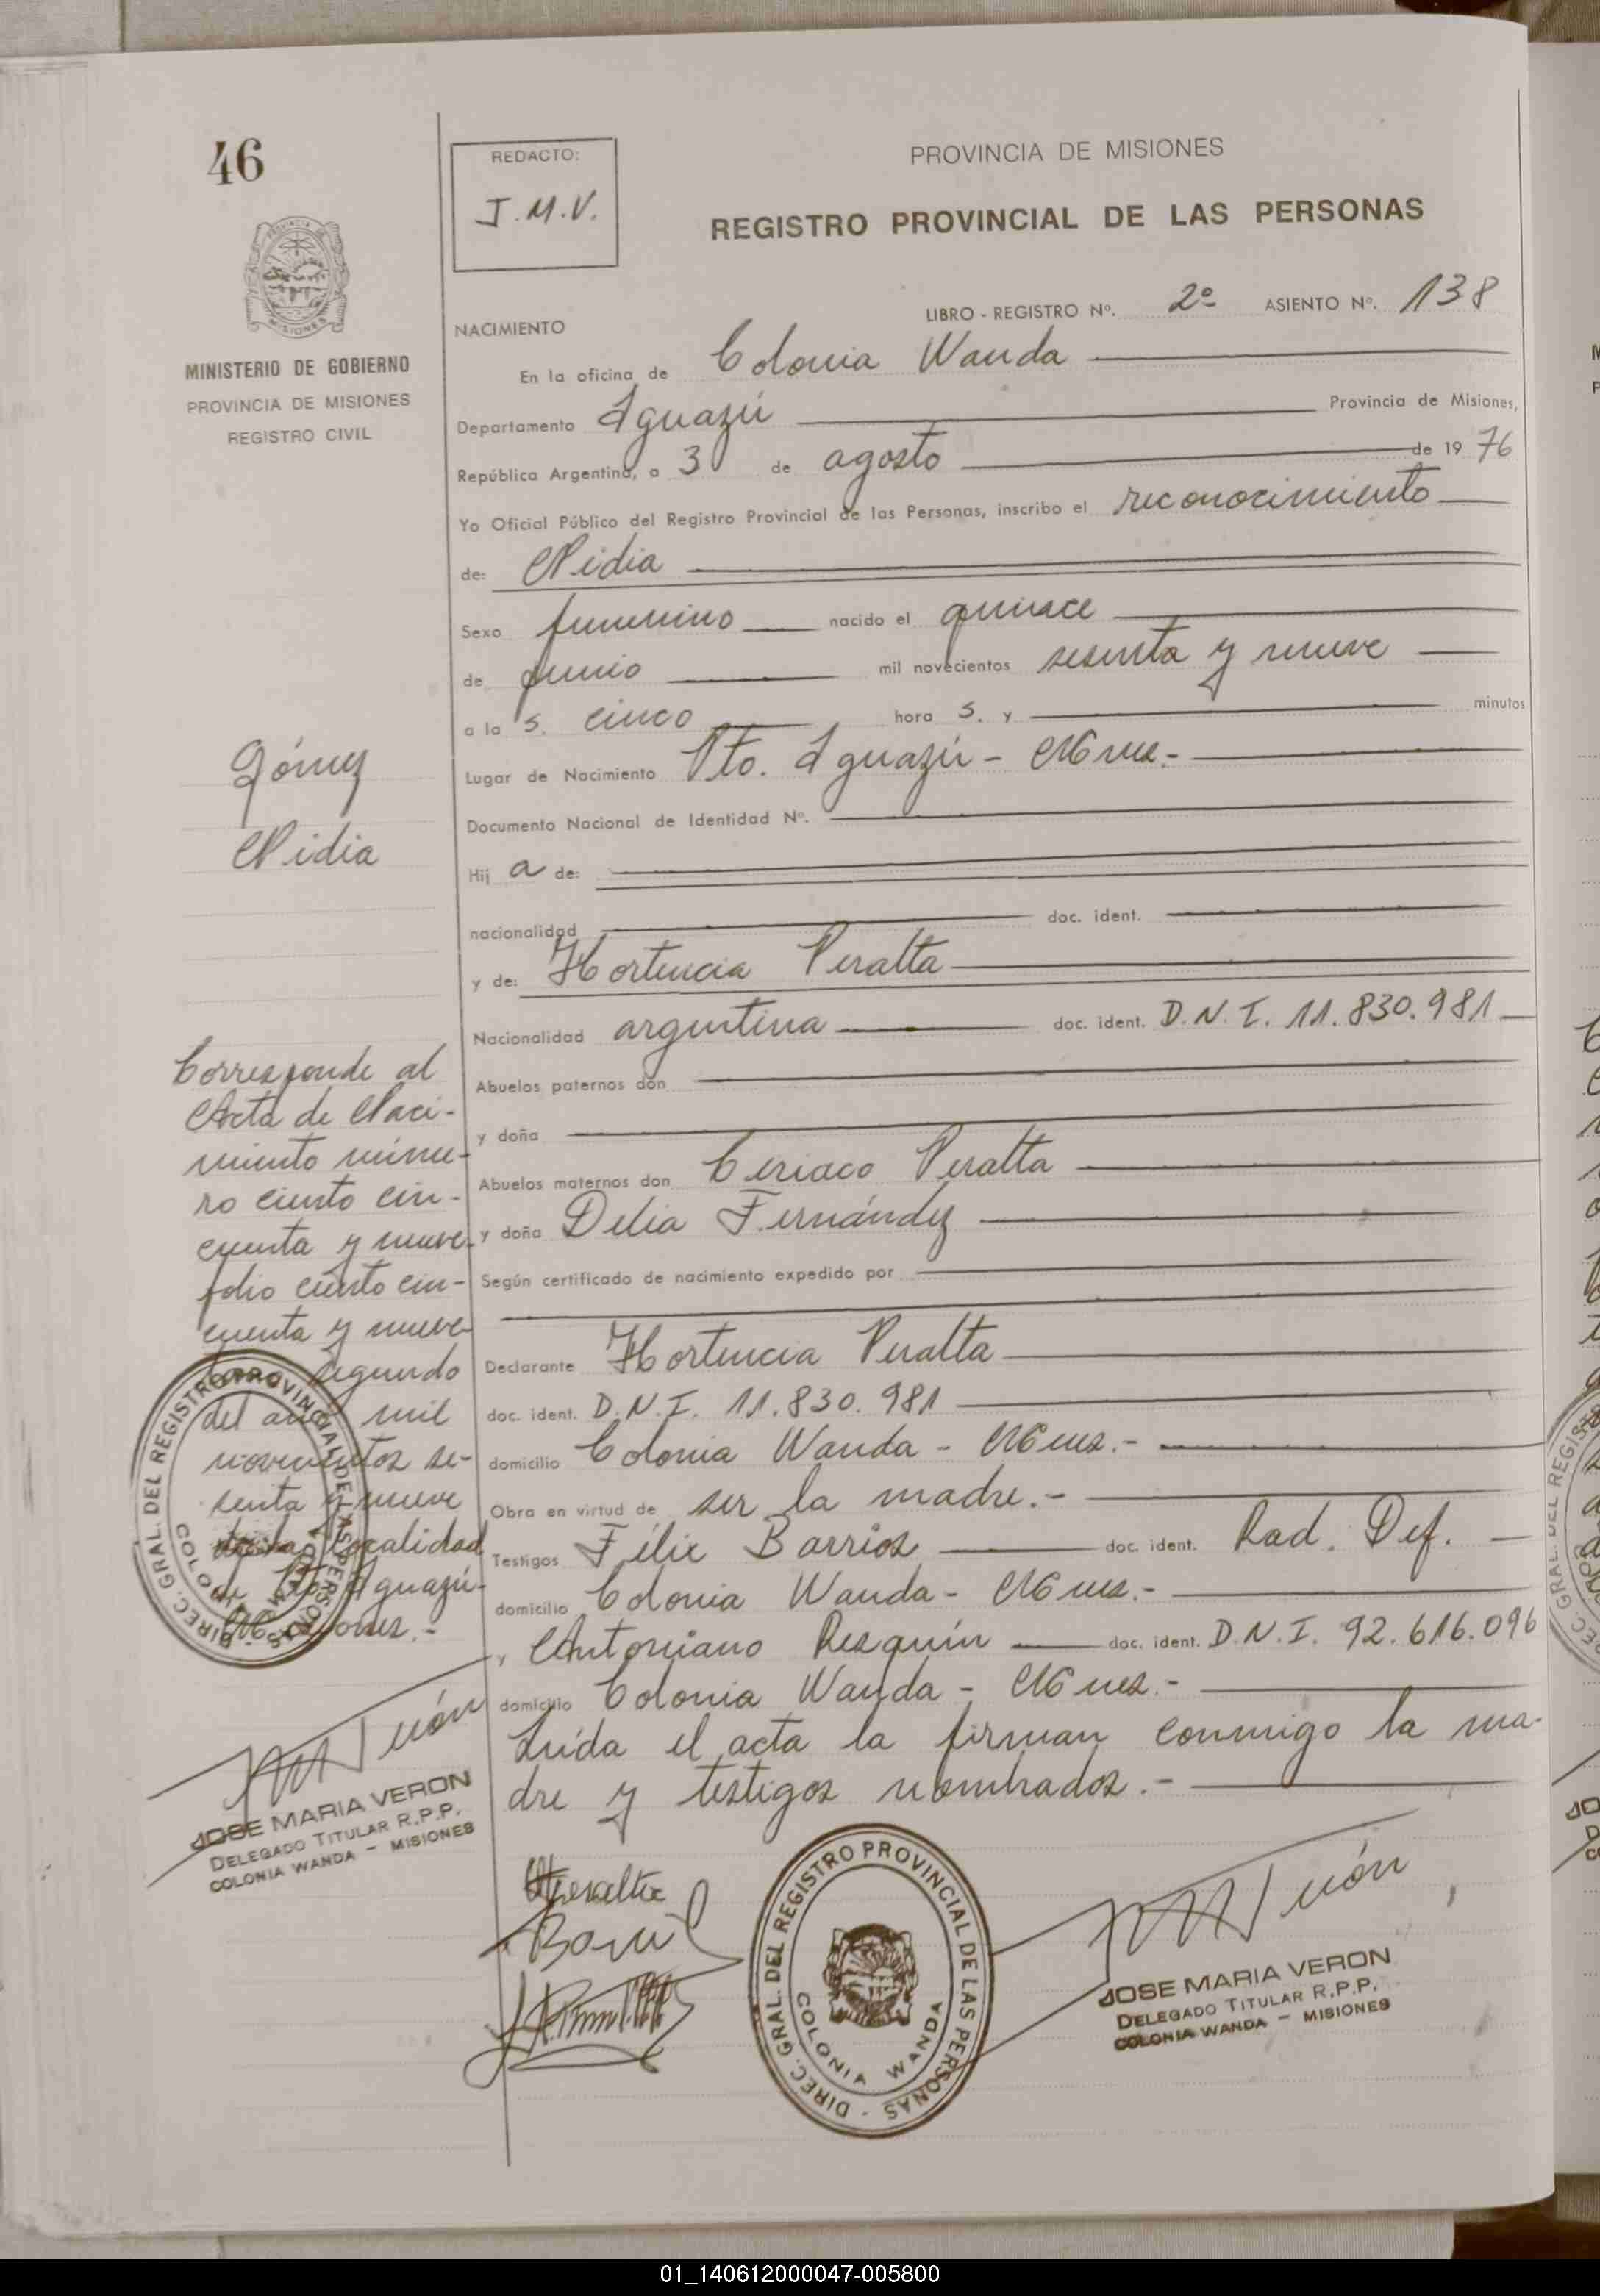 46
REDACTO:
J.M.V.
PROVINCIA DE MISIONES
REGISTRO PROVINCIAL DE LAS PERSONAS
LIBRO - REGISTRO Nº. 2º ASIENTO Nº. 138
MINISTERIO DE GOBIERNO
PROVINCIA DE MISIONES
REGISTRO CIVIL
NACIMIENTO
En la oficina de Colonia Wanda
Departamento Iguazú Provincia de Misiones,
República Argentina, a 3 de agosto de 1976
Yo Oficial Público del Registro Provincial de las Personas, inscribo el reconocimiento
de: Nidia
Sexo femenino nacido el quince
de junio mil novecientos sesenta y nueve
a la s. cinco hora s. y minutos
Lugar de Nacimiento Pto. Iguazú - Mnes.-
Documento Nacional de Identidad Nº.
Hij a de:
nacionalidad doc. ident.
y de: Hortencia Peralta
Nacionalidad argentina doc. ident. D.N.I. 11.830.981
Abuelos paternos don
y doña
Abuelos maternos don Ceriaco Peralta
y doña Delia Fernández
Según certificado de nacimiento expedido por
Declarante Hortencia Peralta
doc. ident. D.N.I. 11.830.981
domicilio Colonia Wanda - Mnes.-
Obra en virtud de ser la madre.-
Testigos Félix Barrios doc. ident. Rad. Def.
domicilio Colonia Wanda - Mnes.-
y Antoniano Resquín doc. ident. D.N.I. 92.616.096
domicilio Colonia Wanda - Mnes.-
Leída el acta la firman conmigo la ma-
dre y testigos nombrados.-
Gómez
Nidia
Corresponde al
Acta de Naci-
miento núme-
ro ciento cin-
cuenta y nueve
folio ciento cin-
cuenta y nueve
segundo
del año mil
novecientos se-
senta y nueve
localidad
de Pto. Iguazú-
Misiones.-
DIREC. GRAL. DEL REGISTRO PROVINCIAL DE LAS PERSONAS
COLONIA WANDA
JOSE MARIA VERON
DELEGADO TITULAR R.P.P.
COLONIA WANDA - MISIONES
HPeralta
DIREC. GRAL. DEL REGISTRO PROVINCIAL DE LAS PERSONAS
COLONIA WANDA
JOSE MARIA VERON
DELEGADO TITULAR R.P.P.
COLONIA WANDA - MISIONES
01_140612000047-005800